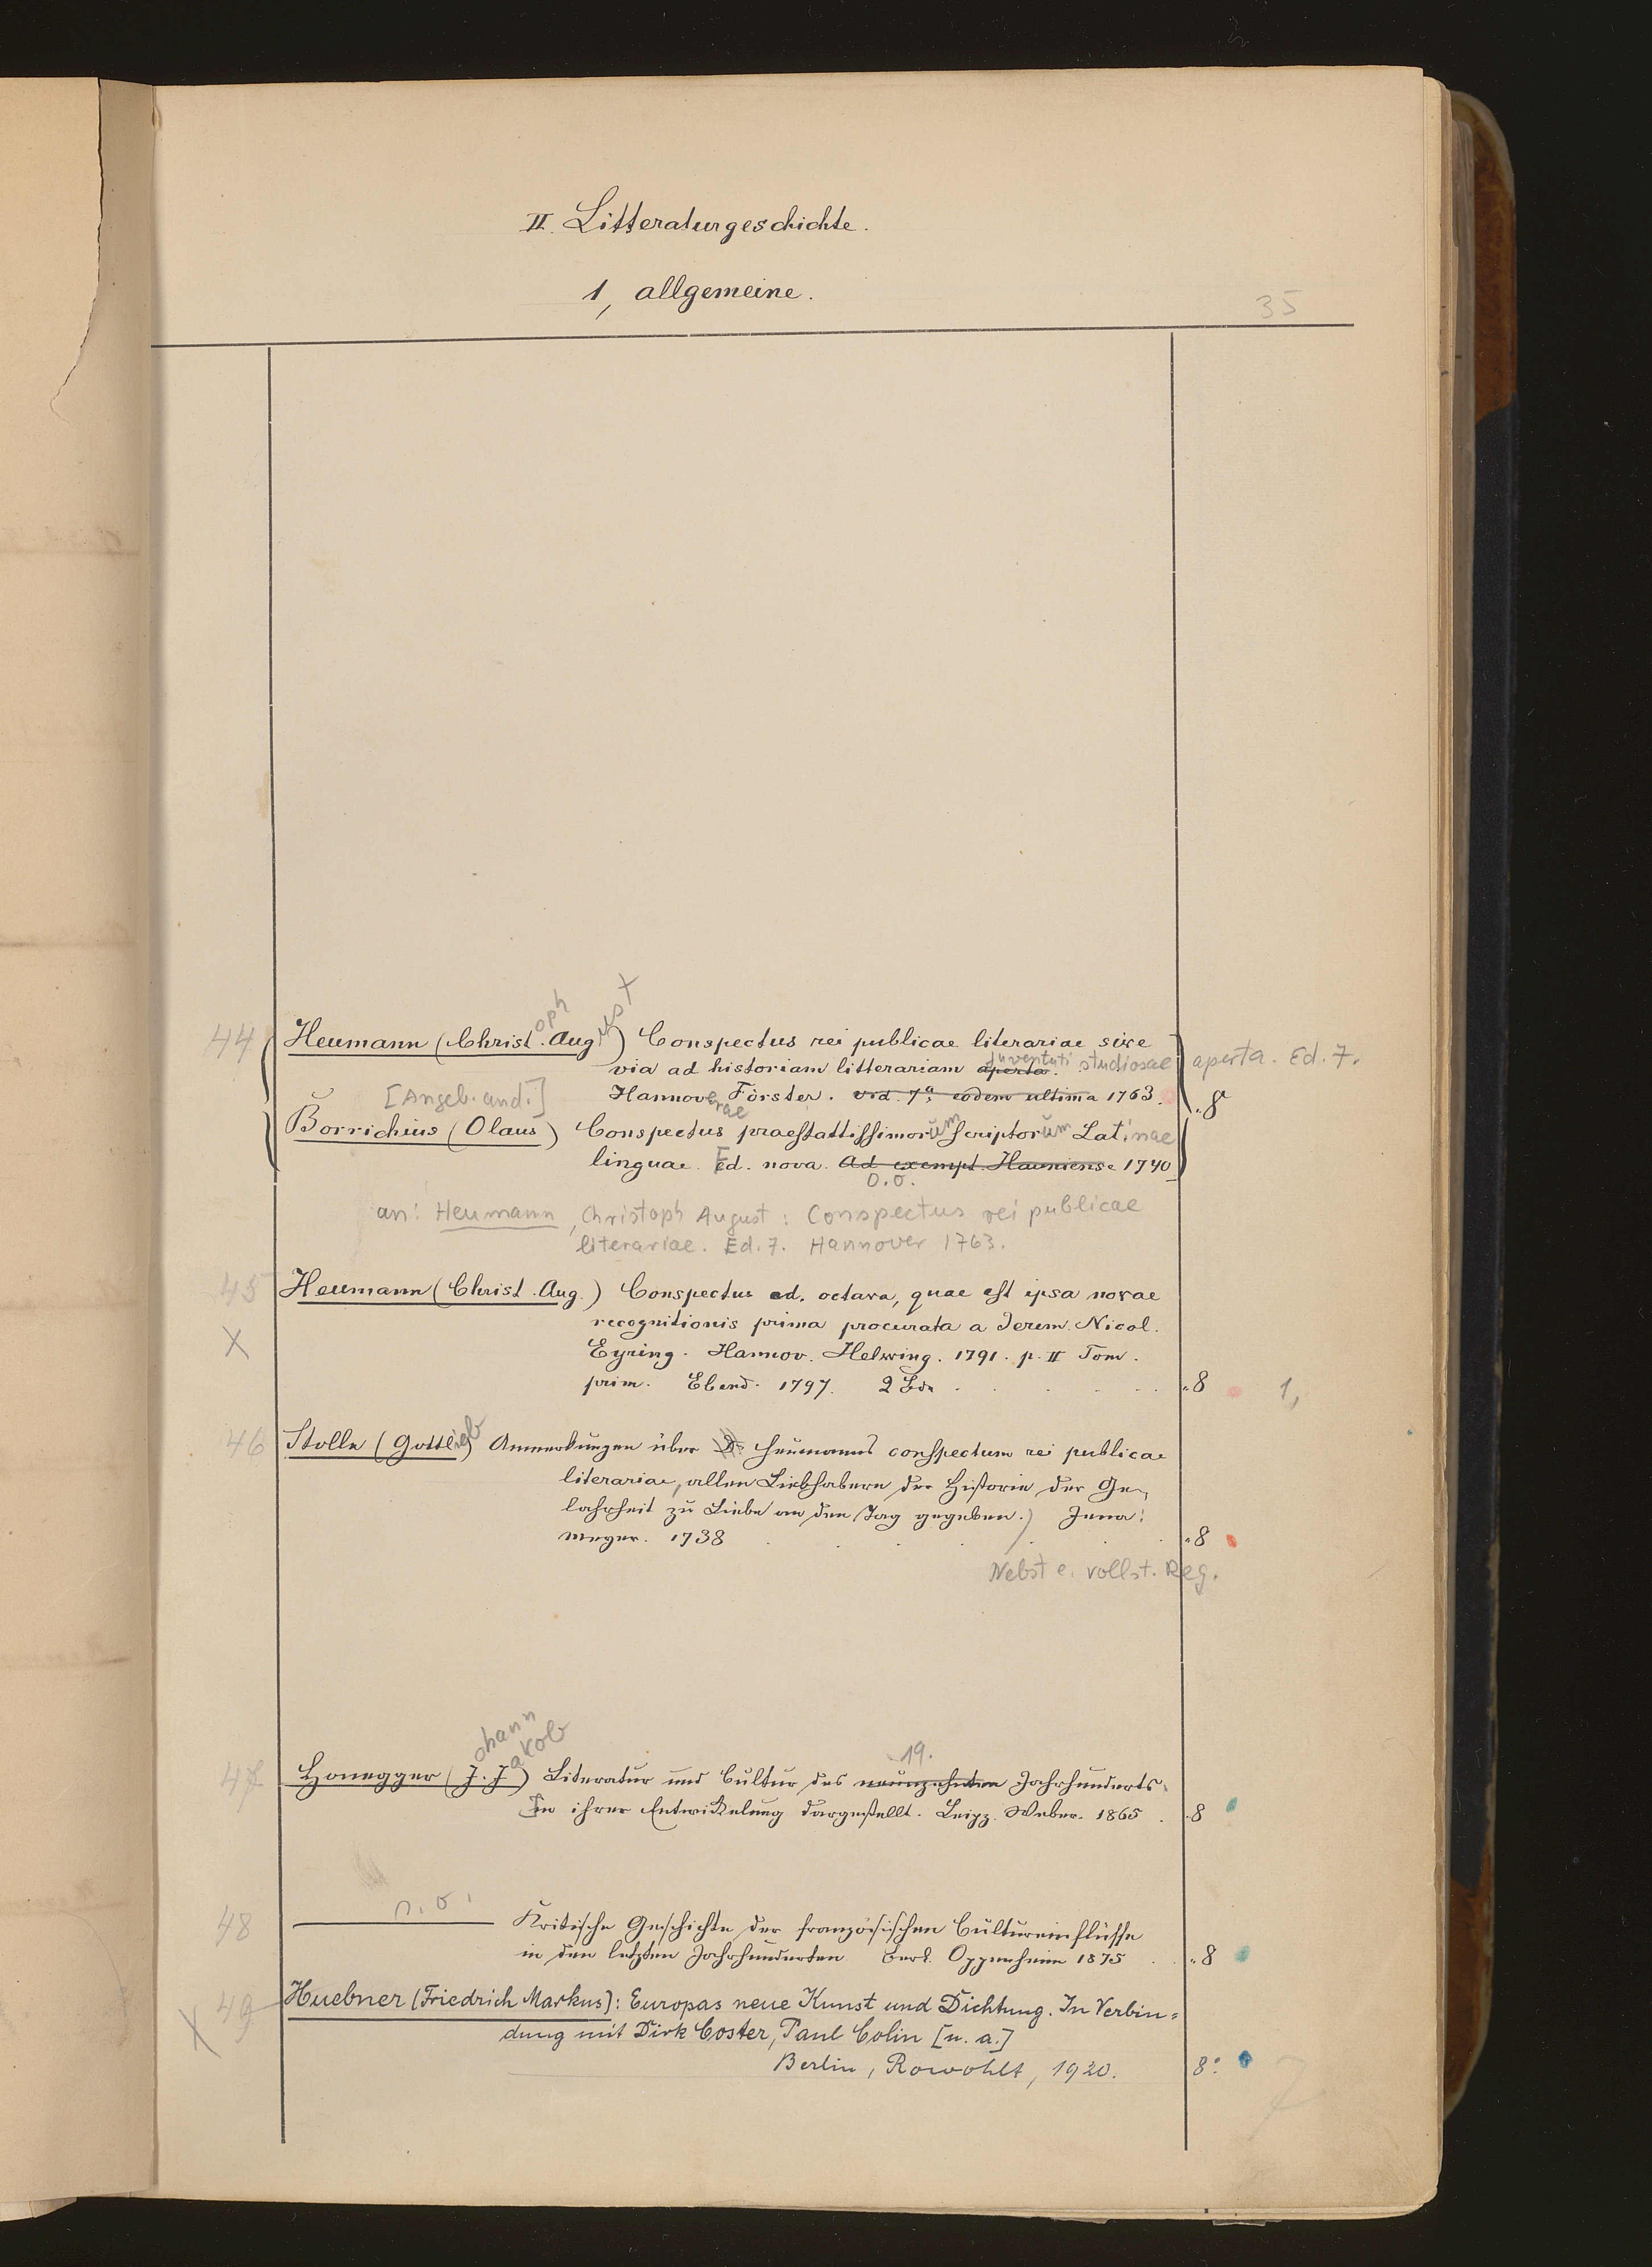 II. Litteraturgeschichte.
1, allgemeine.
35
44 Heumann (Christoph August) Conspectus rei publicae literariae sive
via ad historiam litterariam aperta. juventuti studiosae aperta. Ed. 7.
[Angeb. and.] Hannoverae Förster. vid. 7a, eodem ultima 1763. 8
Borrichius (Olaus) Conspectus praestattissimorum scriptorum Latinae
linguae. Ed. nova. Ad exempl. Hauniense 1740
o. O.
an: Heumann, Christoph August: Conspectus rei publicae
literariae. Ed. 7. Hannover 1763.
45 Heumann (Christ. Aug.) Conspectus ed. octava, quae est ipsa novae
recognitionis prima procurata a Jerem. Nicol.
X Eyring. Hannov. Helwing. 1791. p. II Tom.
prim. Ebend. 1797. 2 Bde . . . . . 8 1,
46 Stolle (Gottlieb) Anmerkungen über D. Heumanns conspectum rei publicae
literariae, allen Liebhabern der Historie der Ge-
lahrheit zu Liebe an den Tag gegeben.) Jena:
Meyer. 1738 . . . . . 8
Nebst e. vollst. Reg.
47 Honegger (Johann Jakob) Literatur und Cultur des neunzehnten 19. Jahrhunderts.
In ihrer Entwickelung dargestellt. Leipz. Weber. 1865 . 8
48 n. o. Kritische Geschichte der französischen Cultureinflüsse
in den letzten Jahrhunderten. Berl. Oppenheim 1875 . . 8
X 49 Huebner (Friedrich Markus): Europas neue Kunst und Dichtung. In Verbin=
dung mit Dirk Coster, Paul Colin [u. a.]
Berlin, Rowohlt, 1920. 8°